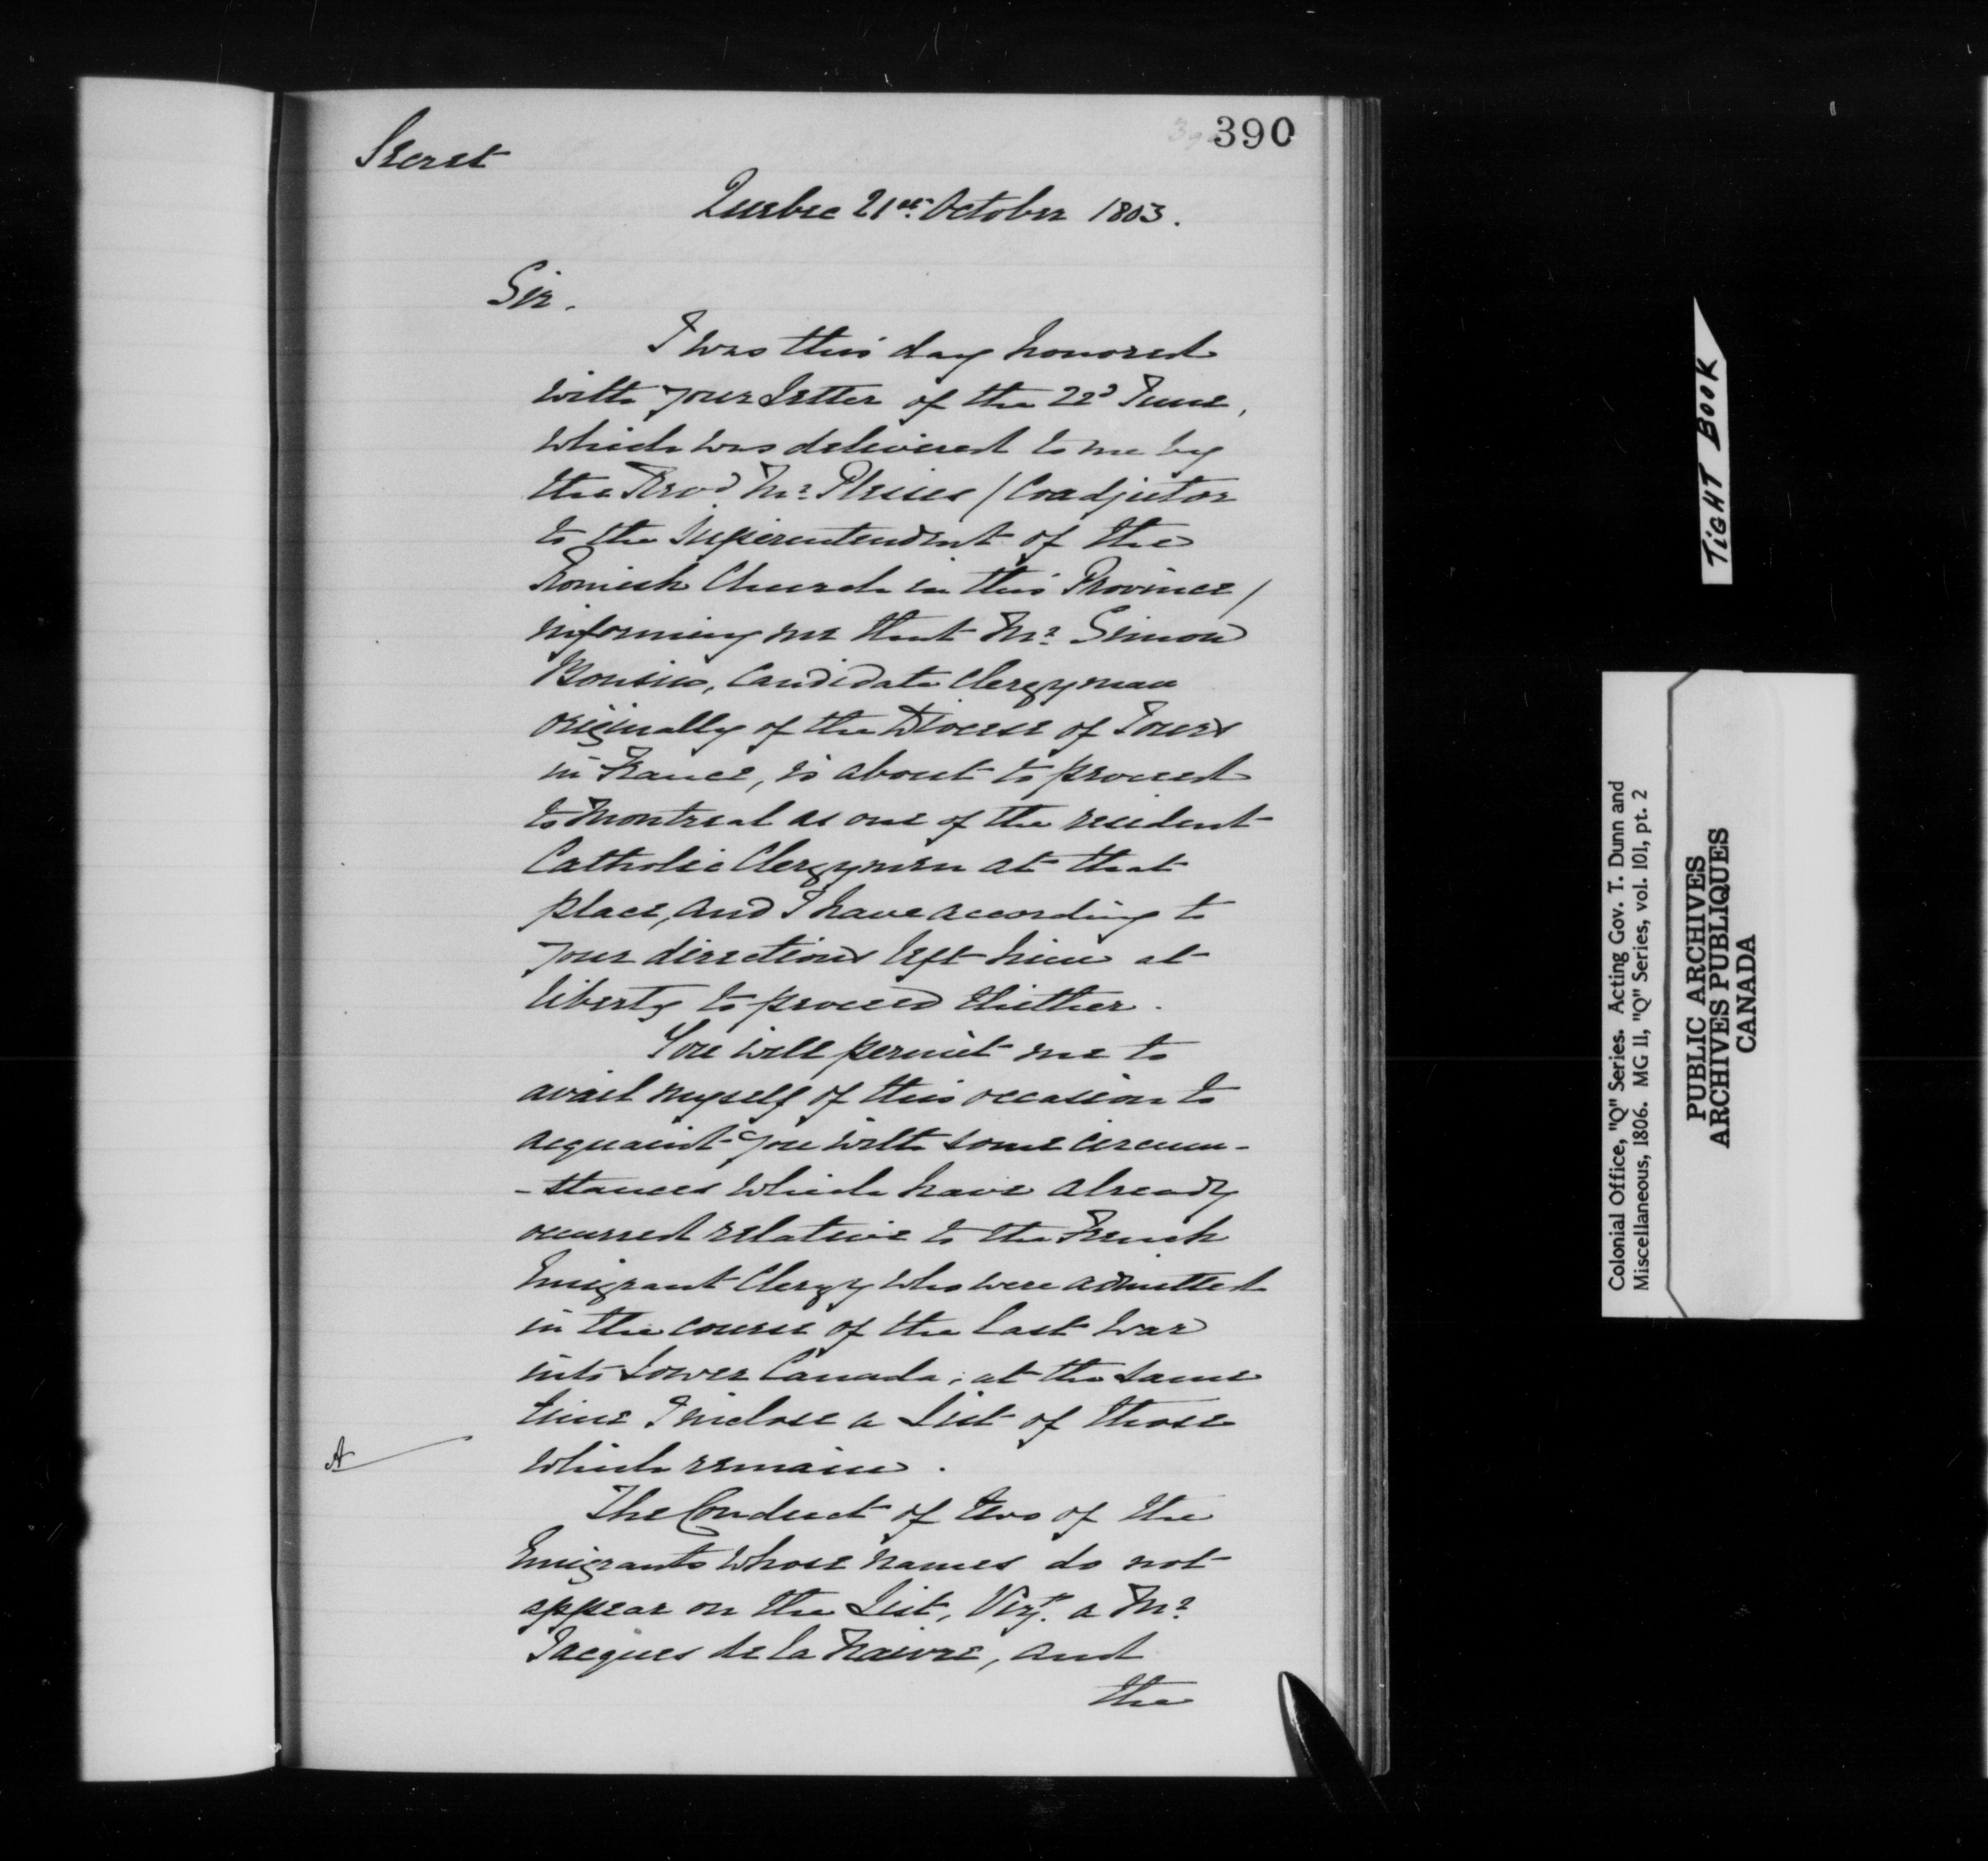 390
Secret
Quebec 21st October 1803.
Sir.
I was this day honored
with your letter of the 22d June,
which was delivered to me by
the Revd Mr. Plessis / Coadjutor
to the Superintendent of the
Romish Church in this Province /
informing me that Mr. Simon
Boussin, Candidate Clergyman
originally of the Diocese of Tours
in France, is about to proceed
to Montreal as one of the resident
Catholic Clergymen at that
place, and I have according to
your directions left him at
liberty to proceed thither.
You will permit me to
avail myself of this occasion to
acquaint you with some circum-
-stances which have already
occurred relative to the French
Emigrant Clergy who were admitted
in the course of the last war
into Lower Canada; at the same
time I inclose a List of those
A
which remain.
The Conduct of two of the
Emigrants whose names do not
appear on the List, Vizt. a Mr.
Jacques de la Naivre, and
the
TIGHT BOOK
Colonial Office, "Q" Series. Acting Gov. T. Dunn and
Miscellaneous, 1806. MG 11, "Q" Series, vol. 101, pt. 2
PUBLIC ARCHIVES
ARCHIVES PUBLIQUES
CANADA